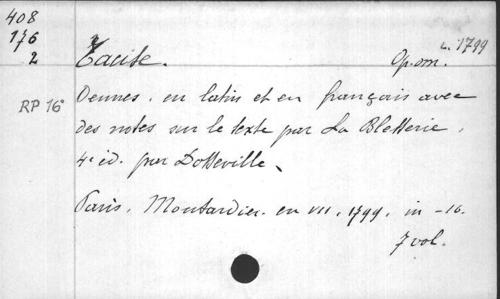 408
176
2
L. 1799
Tacite.
Op. om.
RP 16°
Oeuvres. en latin et en français avec
des notes sur le texte par La Bletterie,
4e éd. par Dotteville.
Paris, Moutardier. en VII, 1799, in -16.
7 vol.